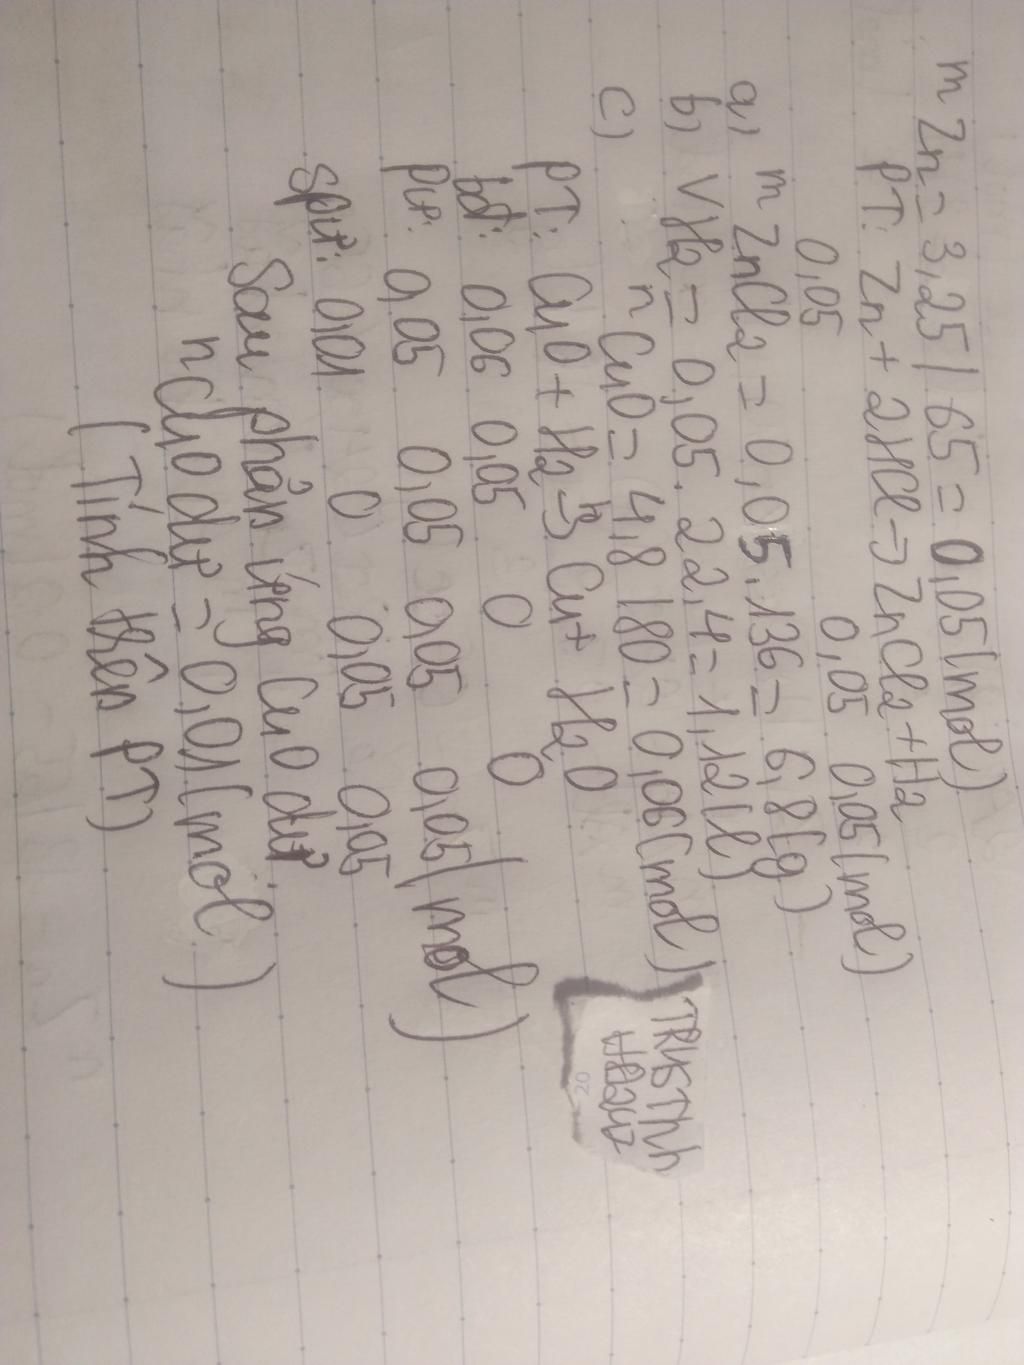 m Zn = 3,25 / 65 = 0,05 (mol)
PT: Zn + 2HCl → ZnCl2 + H2
0,05 0,05 0,05 (mol)
a) m ZnCl2 = 0,05.136 = 6,8 (g)
b) VH2 = 0,05. 22,4 = 1,12 (l)
c) n CuO = 4,8 / 80 = 0,06 (mol)
PT: CuO + H2 → Cu + H2O
bđ: 0,06 0,05 0 0
pư: 0,05 0,05 0,05 0,05 (mol)
spư: 0,01 0 0,05 0,05
Sau phản ứng CuO dư
nCuO dư = 0,01 (mol)
(Tính trên PT)
20